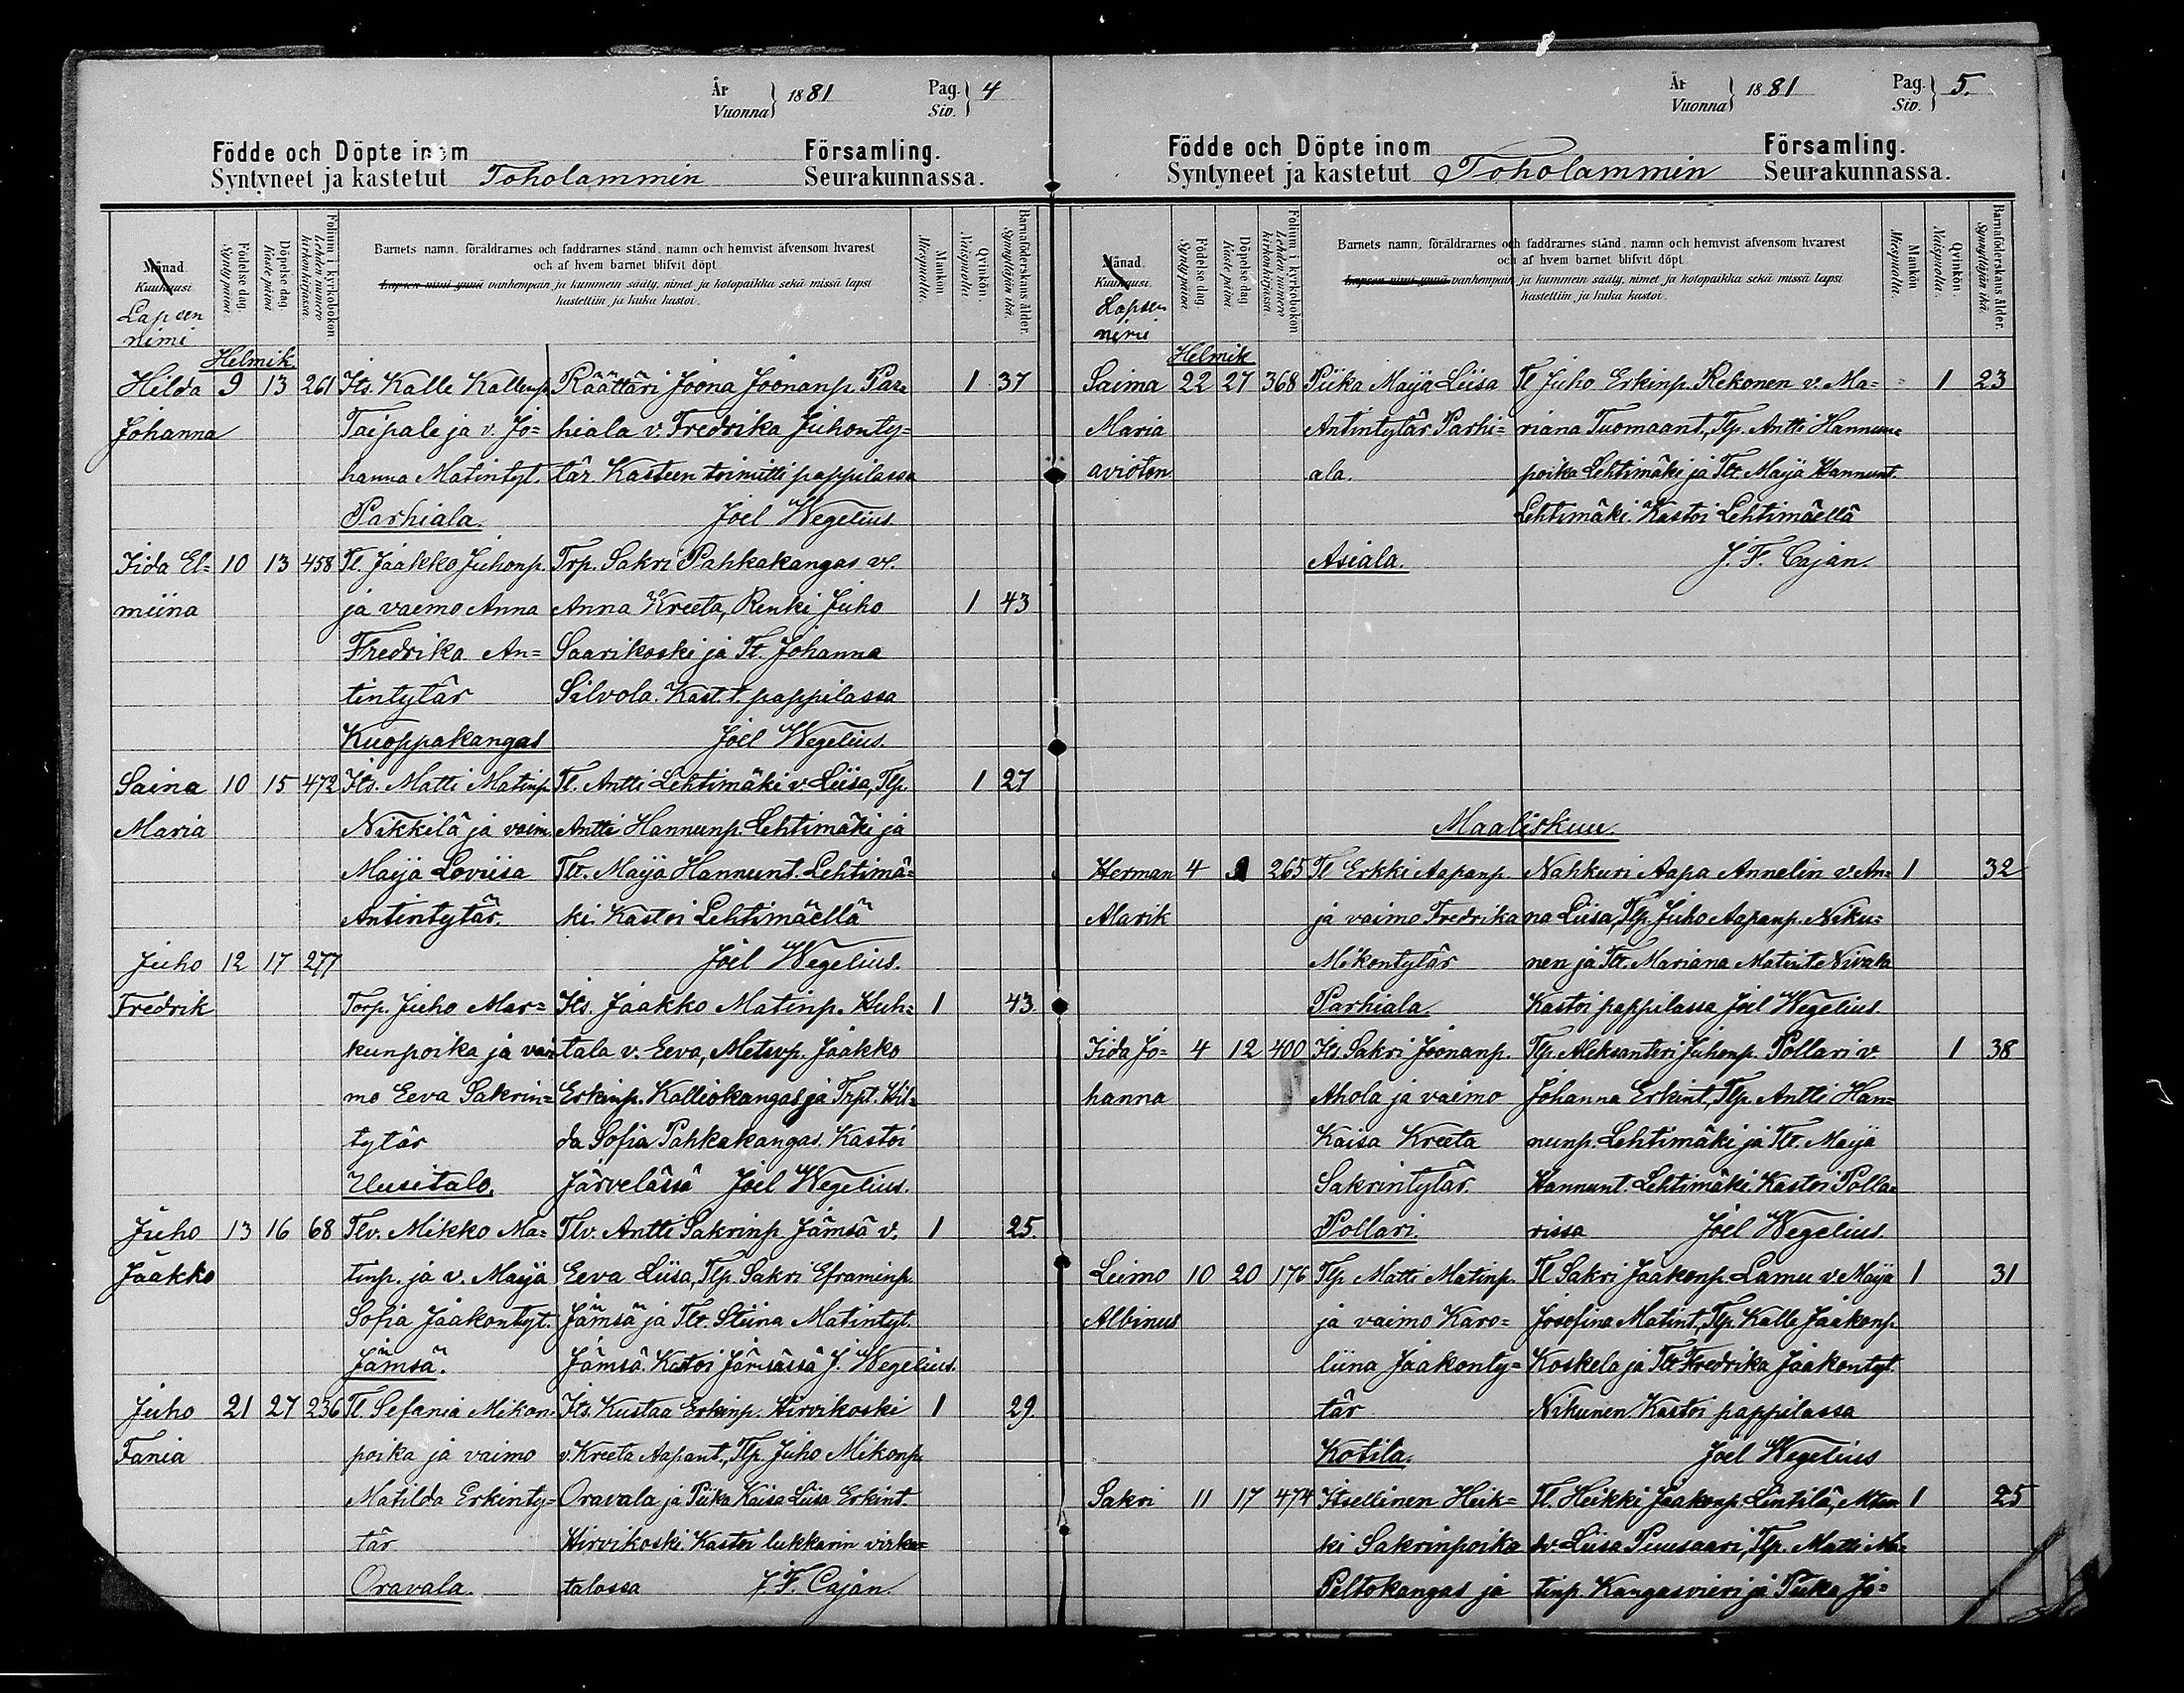 År
Vuonna } 1881
Pag.
Siv. } 4
Födde och Döpte inom Församling.
Syntyneet ja kastetut Toholammin Seurakunnassa.
Månad. Kuukausi. Lapsen nimi
Födelse dag. Syntypäivä.
Döpelse dag. Kaste päivä.
Folium i kyrkoboken Lehden numero kirkonkirjassa.
Barnets namn, föräldrarnes och faddrarnes stånd, namn och hemvist äfvensom hvarest
och af hvem barnet blifvit döpt.
Lapsen nimi ynnä vanhempain ja kummein sääty, nimet ja kotopaikka sekä missä lapsi
kastettiin ja kuka kastoi.
Mankön. Miespuolia.
Qvinkön. Naispuolia.
Barnaföderskans ålder. Synnyttäjän ikä.
Helmik.
Hilda 9 13 261 Its. Kalle Kallenp. Räättäri Joona Joonanp. Par= 1 37
Johanna Taipale ja v. Jo= hiala v. Fredrika Juhonty=
hanna Matintyt. tär. Kasteen toimitti pappilassa
Parhiala. Joel Wegelius.
Iida El= 10 13 458 Tl. Jaakko Juhonp. Trp. Sakri Pahkakangas v.
miina ja vaimo Anna Anna Kreeta, Renki Juho 1 43
Fredrika An= Saarikoski ja Tt. Johanna
tintytär Silvola. Kast. t. pappilassa
Kuoppakangas Joel Wegelius.
Saina 10 15 472 Its. Matti Matinp. Tl. Antti Lehtimäki v. Liisa, Tlp. 1 27
Maria Nikkilä ja vaim. Antti Hannunp. Lehtimäki ja
Maija Loviisa Tlt. Maija Hannunt. Lehtimä=
Antintytär. ki. Kastoi Lehtimäellä
Juho 12 17 277 Joel Wegelius.
Fredrik Torp. Juho Mar= Its. Jaakko Matinp. Huh= 1 43.
kunpoika ja vai= tala v. Eeva, Metsvp. Jaakko
mo Eeva Sakrin= Erkinp. Kalliokangas ja Trpt. Hil=
tytär da Sofia Pahkakangas. Kastoi
Uusitalo. Järvelässä Joel Wegelius.
Juho 13 16 68 Tlv. Mikko Ma= Tlv. Antti Sakrinp. Jämsä v. 1 25.
Jaakko tinp. ja v. Maija Eeva Liisa, Tlp. Sakri Eframinp.
Sofia Jaakontyt. Jämsä ja Tlt. Stiina Matintyt.
Jämsä. Jämsä. Kastoi Jämsässä J. Wegelius.
Juho 21 27 236 Tl. Sefania Mikon= Its. Kustaa Erkinp. Hirvikoski 1 29.
Fania poika ja vaimo v. Kreeta Aapant., Tlp. Juho Mikonp.
Matilda Erkinty= Oravala ja Piika Kaisa Liisa Erkint.
tär Hirvikoski. Kastoi lukkarin virka=
Oravala. talossa J. F. Cajan.
År
Vuonna } 1881
Pag.
Siv. } 5.
Födde och Döpte inom Församling.
Syntyneet ja kastetut Toholammin Seurakunnassa.
Månad. Kuukausi. Lapsen nimi
Födelse dag. Syntypäivä.
Döpelse dag. Kaste päivä.
Folium i kyrkoboken Lehden numero kirkonkirjassa.
Barnets namn, föräldrarnes och faddrarnes stånd, namn och hemvist äfvensom hvarest
och af hvem barnet blifvit döpt.
Lapsen nimi ynnä vanhempain ja kummein sääty, nimet ja kotopaikka sekä missä lapsi
kastettiin ja kuka kastoi.
Mankön. Miespuolia.
Qvinkön. Naispuolia.
Barnaföderskans ålder. Synnyttäjän ikä.
Helmik
Saima 22 27 368 Piika Maija Liisa Tl Juho Erkinp. Rekonen v. Ma= 1 23
Maria Antintytär Parhi= riana Tuomaant., Tlp. Antti Hannun=
avioton ala. poika Lehtimäki ja Tlt. Maija Hannunt.
Lehtimäki. Kastoi Lehtimäellä
Asiala. J. F. Cajan.
Maaliskuu.
Herman 4 265 Tl Erkki Aapanp. Nahkuri Aapa Annelin v. An= 1 32
Alarik ja vaimo Fredrika na Liisa, Tlp. Juho Aapanp. Niku=
Mikontytär nen ja Tlt. Mariana Matint. Nivala
Parhiala. Kastoi pappilassa Joel Wegelius.
Iida Jo= 4 12 400 Its. Sakri Joonanp. Tlp. Aleksanteri Juhonp. Pollari v 1 38
hanna Ahola ja vaimo Johanna Erkint, Tlp. Antti Han=
Kaisa Kreeta nunp. Lehtimäki ja Tlt. Maija
Sakrintytär. Hannunt. Lehtimäki. Kastoi Polla=
Pollari. rissa Joel Wegelius.
Leimo 10 20 176 Tlp Matti Matinp. Tl Sakri Jaakonp. Lamu v. Maija 1 31
Albinus ja vaimo Karo= Josefina Matint, Tlp. Kalle Jaakonp.
liina Jaakonty= Koskela ja Tlt Fredrika Jaakontyt.
tär Nikunen. Kastoi pappilassa
Kotila. Joel Wegelius
Sakri 11 17 474 Itsellinen Heik= Tl. Heikki Jaakonp. Lintilä, 1 25
ki Sakrinpoika v. Liisa Puusaari, Tlp. Matti Ma=
Peltokangas ja tinp. Kangasvieri ja Piika Jo=